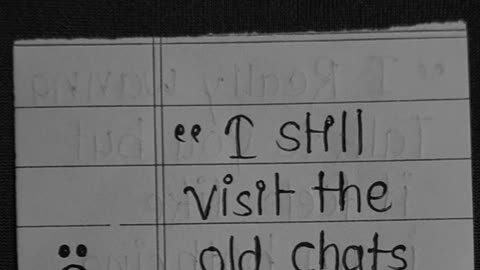 “I still
visit the
old chats